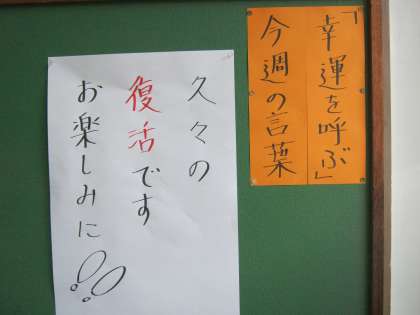 「幸運を呼ぶ」
今週の言葉
久々の
復活です
お楽しみに!!